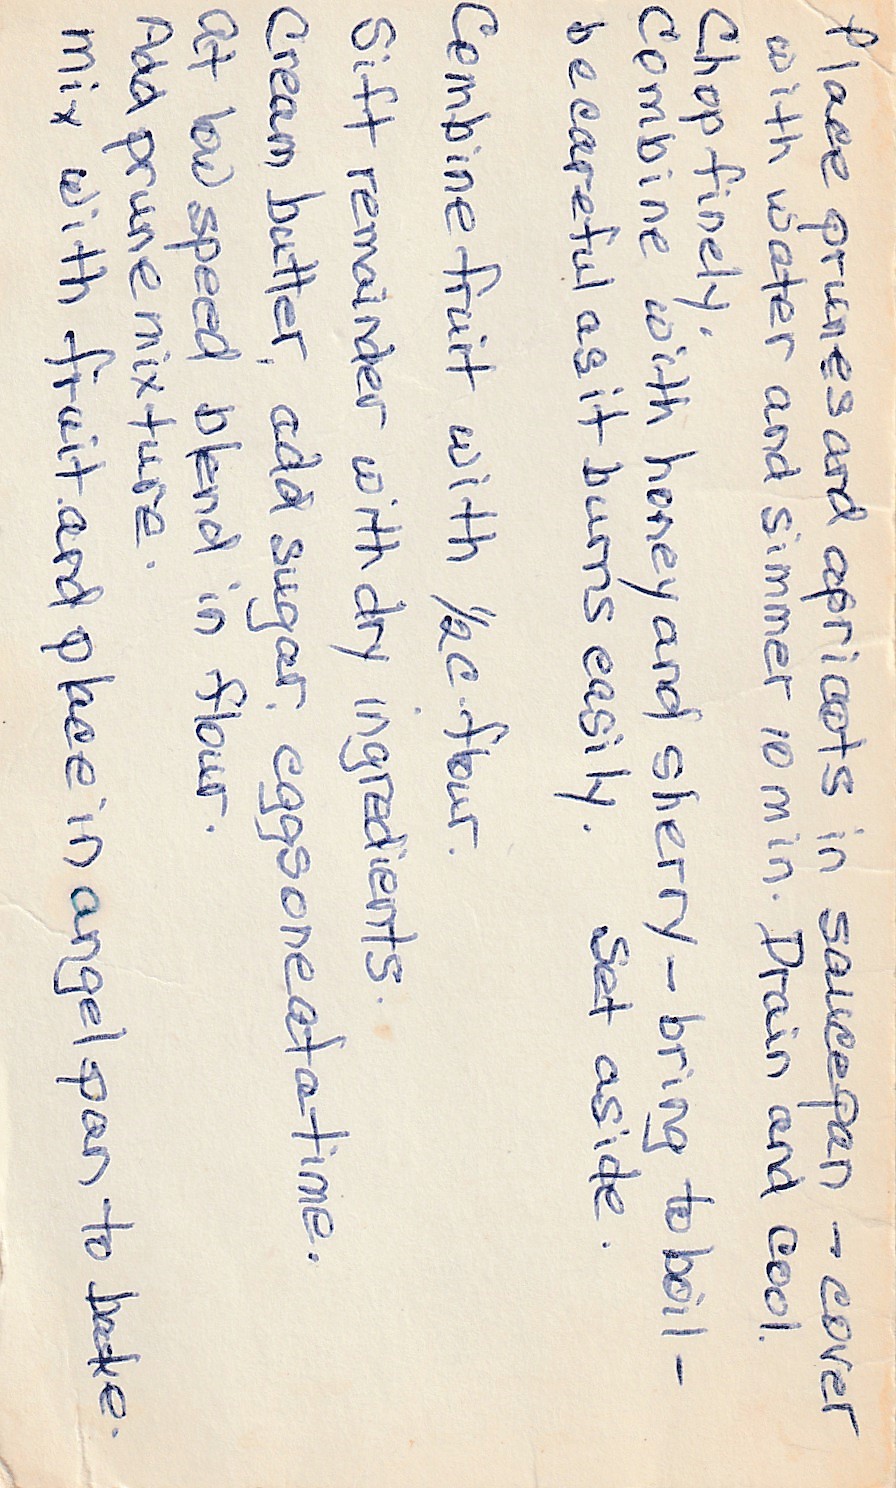 Place prunes and apricots in saucepan - cover
with water and simmer 10 min. Drain and cool.
Chop finely.
Combine with honey and sherry - bring to boil -
be careful as it burns easily. Set aside.
Combine fruit with 1/2 c. flour.
Sift remainder with dry ingredients.
Cream butter, add sugar, eggs one at a time.
at low speed blend in flour.
Add prune mixture.
mix with fruit and place in angel pan to bake.